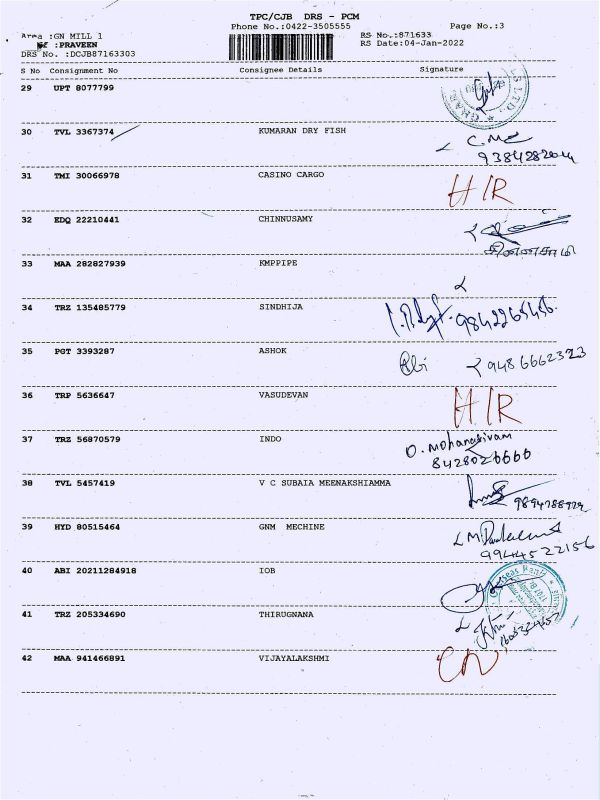 TPC/CJB DRS - PCM
Phone No.:0422-3505555
Page No.:3
Area :GN MILL 1
RS No.:871633
:PRAVEEN
RS Date:04-Jan-2022
DRS No. :DCJB87163303
S No Consignment No Consignee Details Signature
29 UPT 8077799
30 TVL 3367374 KUMARAN DRY FISH
31 TMI 30066978 CASINO CARGO
H/R
32 EDQ 22210441 CHINNUSAMY
33 MAA 282827939 KMPPIPE
34 TRZ 135485779 SINDHIJA
9842265456
35 PGT 3393287 ASHOK
Abi 9486662323
36 TRP 5636647 VASUDEVAN
H/R
37 TRZ 56870579 INDO
D. Mohanasivam
8428026666
38 TVL 5457419 V C SUBAIA MEENAKSHIAMMA
9894788929
39 HYD 80515464 GNM MECHINE
9944522156
40 ABI 20211284918 IOB
41 TRZ 205334690 THIRUGNANA
42 MAA 941466891 VIJAYALAKSHMI